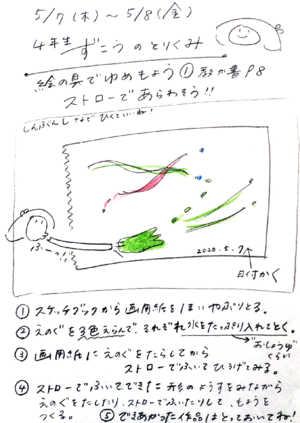 5/7(木)～5/8(金)
4年生 ずこうのとりくみ
絵の具でゆめもよう① 教か書P8
ストローであらわそう!!
しんぶんしなどでひくといいね!
ふー
2020.5.7
日にちかく
① スケッチブックから画用紙を1まいやぶりとる。
② えのぐを3色えらんで、それぞれ水をたっぷり入れてとく。
"おしょうゆ"くらい
③ 画用紙にえのぐをたらしてから
ストローでふいてひろげてみる。
④ ストローでふいてできた形のようすをみながら
えのぐをたしたり、ストローでふいたりして、もようを
つくる。
⑤ できあがった作品はとっておいてね!